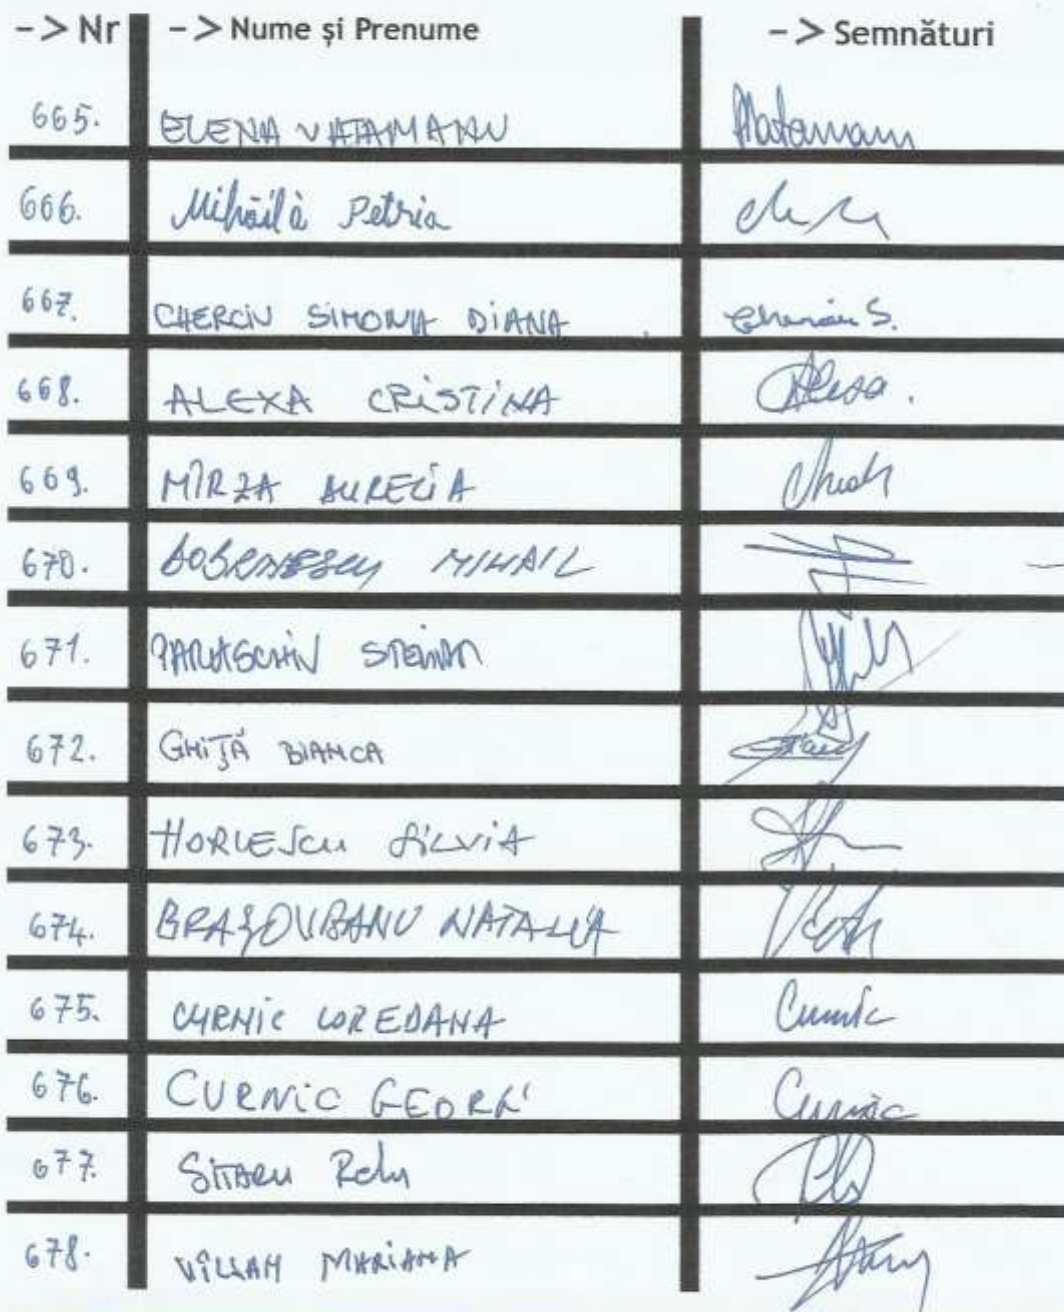 -> Nr -> Nume și Prenume -> Semnături
665. ELENA VATAMANU
666. Mihăilă Petria
667. CHERCIU SIMONA DIANA Cherciu S.
668. ALEXA CRISTINA Alexa.
669. MÎRZA AURELIA
670. MIHAIL
671. PARASCHIV STEFAN
672. GHIȚĂ BIANCA
673. HORLESCU SILVIA
674. BRAȘOVEANU NATALIA
675. CURNIC LOREDANA Curnic
676. CURNIC GEORG' Curnic
677. SITARU Relu
678. MARIANA